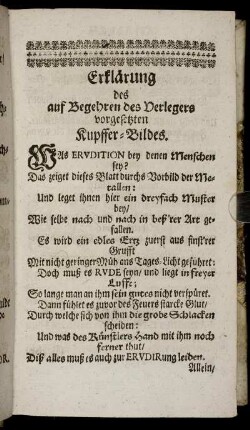 Erklärung
des
auf Begehren des Verlegers
vorgesetzten
Kupffer-Bildes.
WAs ERVDITION bey denen Menschen
sey?
Das zeiget dieses Blatt durchs Vorbild der Me-
tallen:
Und leget ihnen hier ein dreyfach Muster
bey/
Wie selbe nach und nach in bess'rer Art ge-
fallen.
Es wird ein edles Ertz zuerst aus finst'rer
Grufft
Mit nicht geringer Müh ans Tages-Licht geführet:
Doch muß es RVDE seyn/ und liegt in freyer
Lufft;
So lange man an ihm sein gutes nicht verspüret.
Dann fühlet es zuvor des Feuers starcke Glut/
Durch welche sich von ihm die grobe Schlacken
scheiden:
Und was des Künstlers Hand mit ihm noch
ferner thut/
Diß alles muß es auch zur ERVDIRung leiden.
Allein/